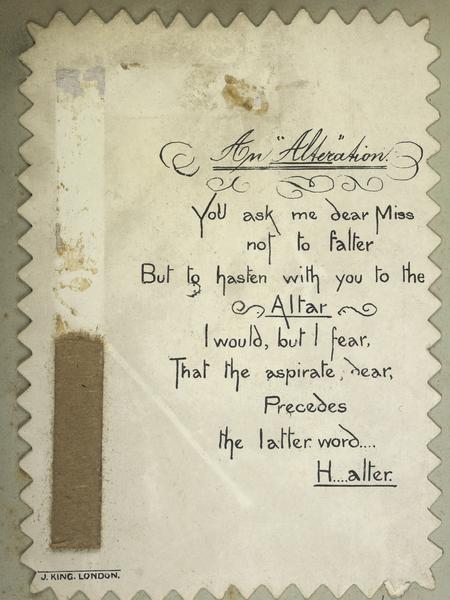 An "Alter"ation.
You ask me dear Miss
not to falter
But to hasten with you to the
Altar
I would, but I fear,
That the aspirate, dear,
Precedes
the latter word....
H....alter.
J. KING. LONDON.